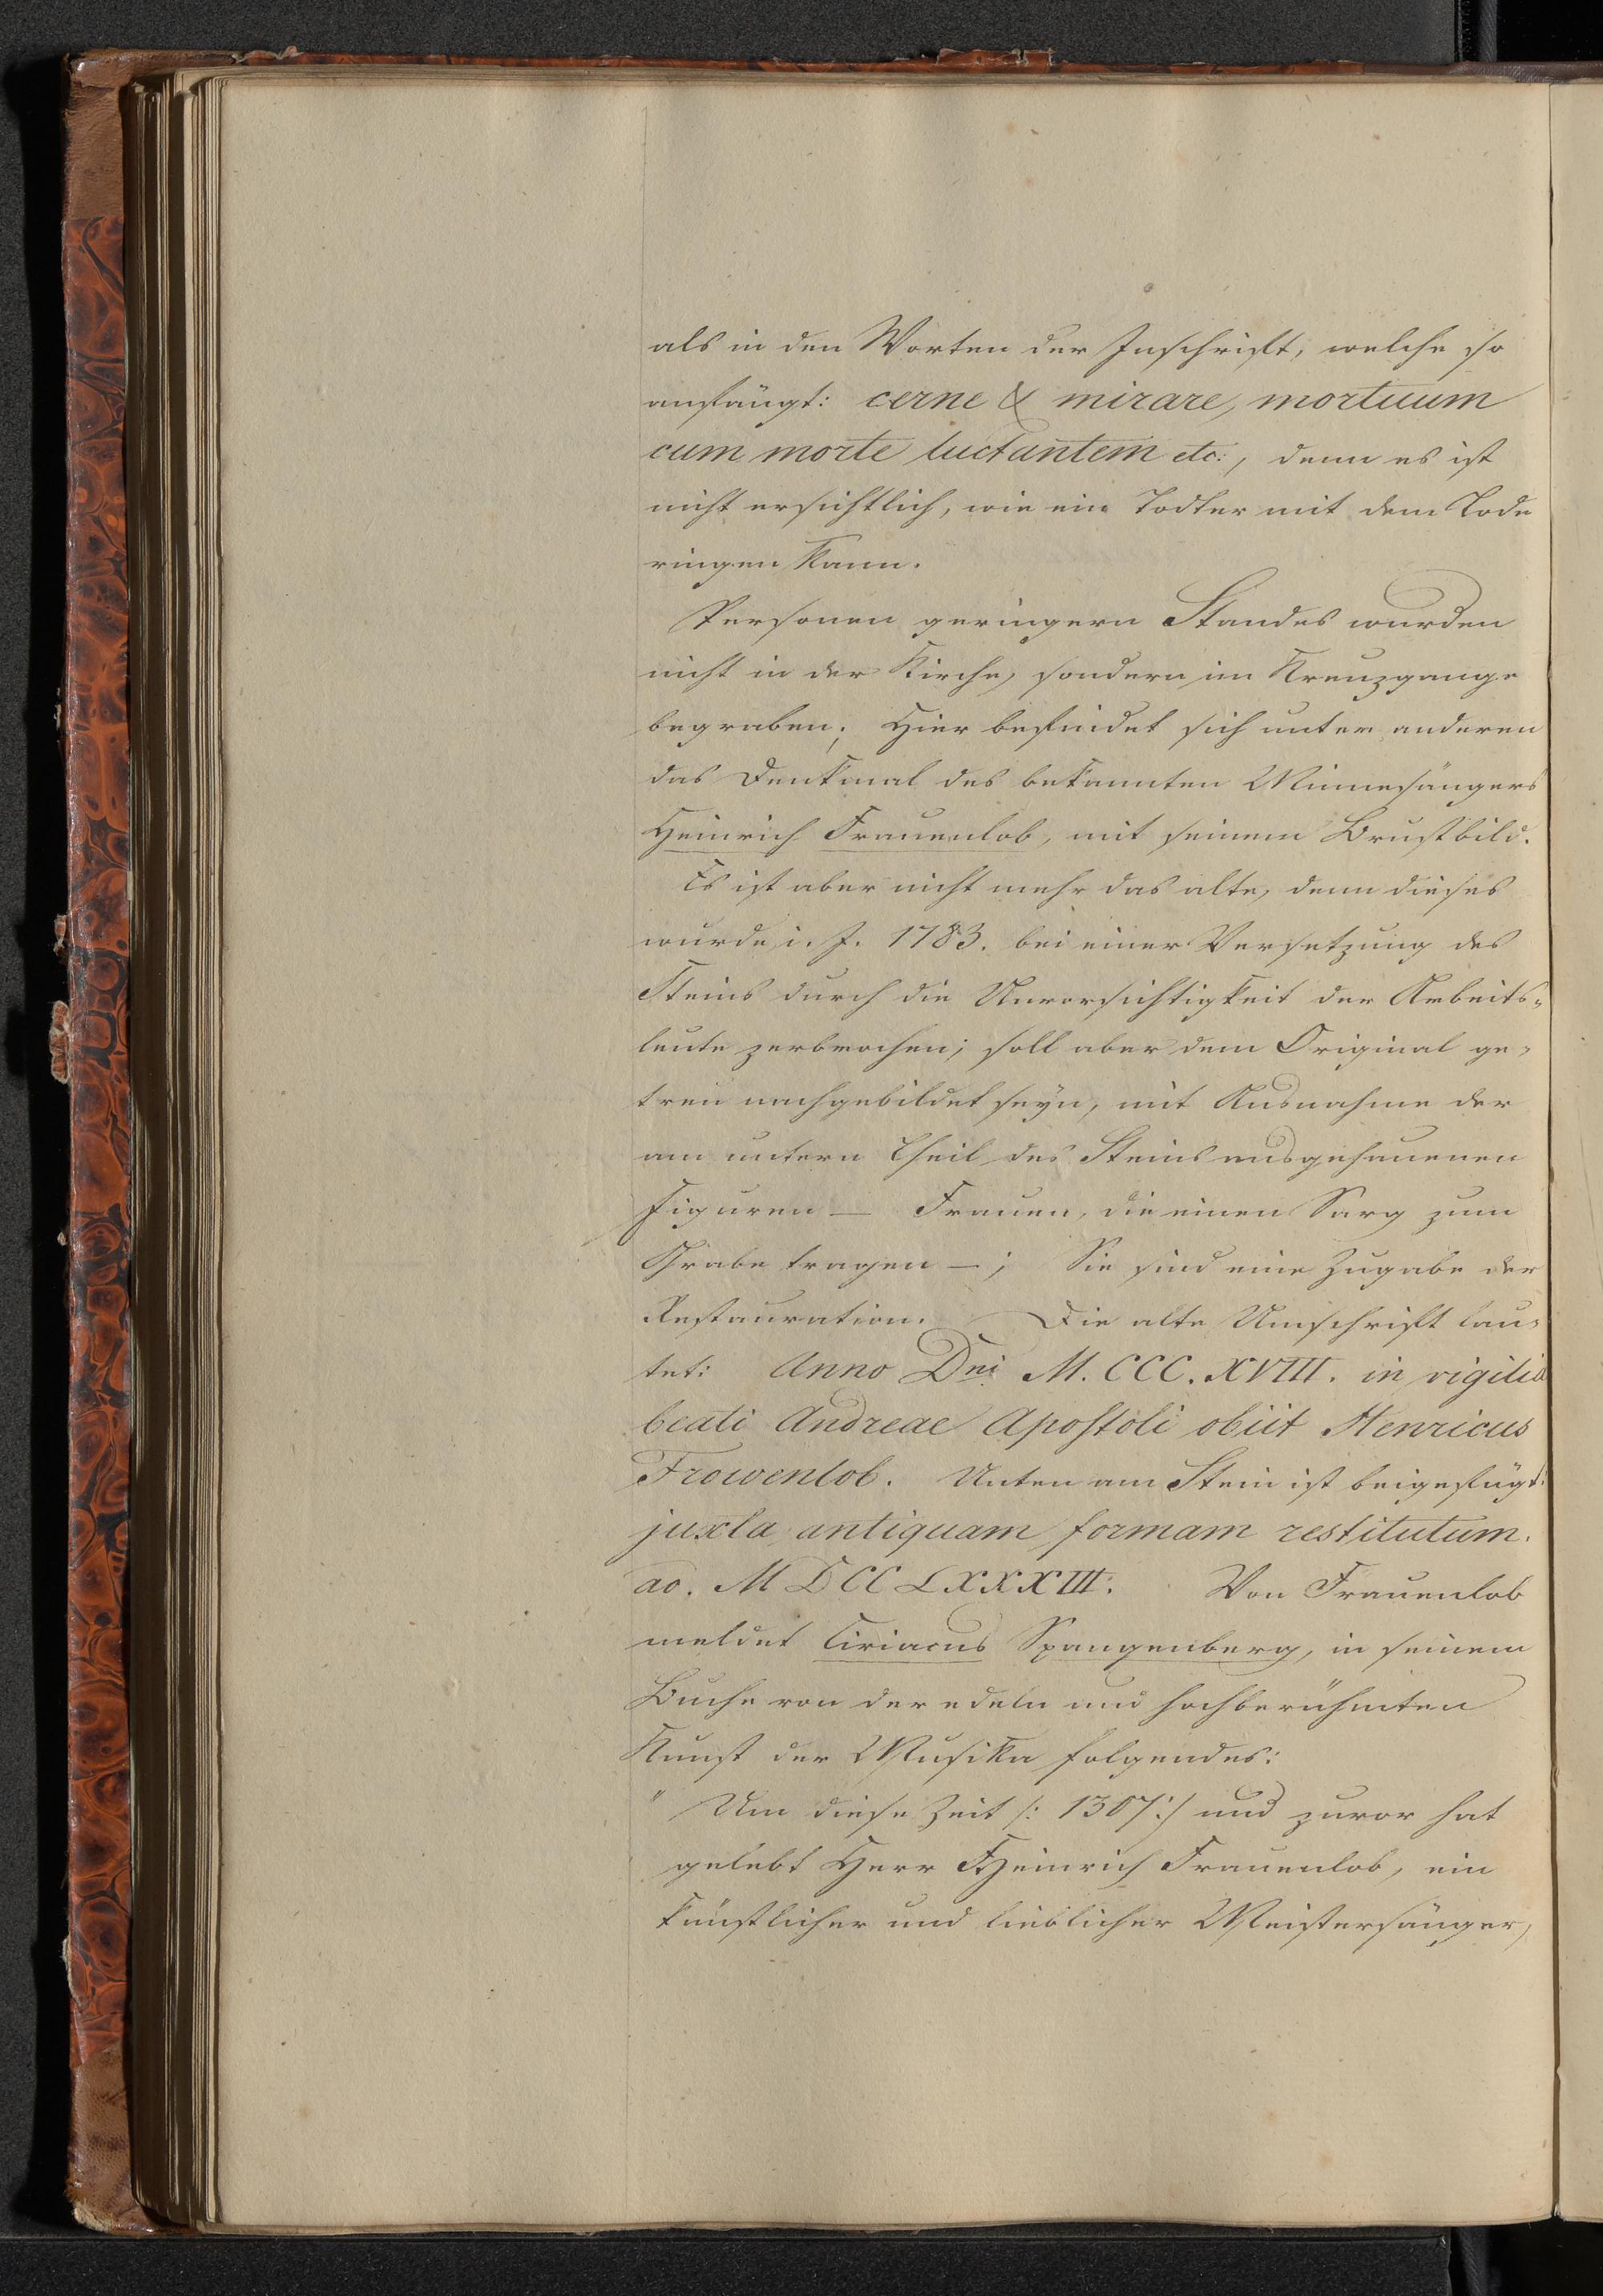 als in den Worten der Inschrift, welche so
anfängt: cerne & mirare, mortuum
cum morte luctantem etc:, denn es ist
nicht ersichtlich, wie ein Todter mit dem Tode
ringen kann.
Personen geringern Standes wurden
nicht in der Kirche, sondern im Kreuzgange
begraben. Hier befindet sich unter anderen
das Denkmal des bekannten Minnesängers
Heinrich Frauenlob, mit seinem Brustbild.
Es ist aber nicht mehr das alte, denn dieses
wurde i. J. 1783. bei einer Versetzung des
Steins durch die Unvorsichtigkeit der Arbeits-
leute zerbrochen; soll aber dem Original ge-
treu nachgebildet seyn, mit Ausnahme der
am untern Theil des Steins ausgehauenen
Figuren — Frauen, die einen Sarg zum
Grabe tragen —; Sie sind eine Zugabe der
Restauration. Die alte Umschrift lau-
tet: Anno Dni M. CCC. XVIII. in vigilia
beati Andreae Apostoli obiit Henricus
Frowenlob. Unten am Stein ist beigefügt:
juxta antiquam formam restitutum.
ao. MDCCLXXXIII. Von Frauenlob
meldet Ciriacus Spangenberg, in seinem
Buche von der edeln und hochberühmten
Kunst der Musika folgendes:
" Um diese Zeit /: 1307:/ und zuvor hat
gelebt Herr Heinrich Frauenlob, ein
künstlicher und lieblicher Meistersänger,